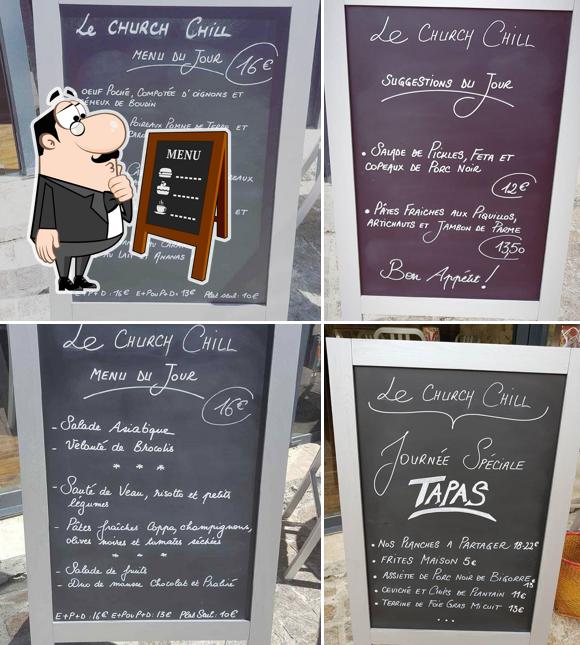 Le CHURCH CHILL
MENU DU JOUR 16€
OEUF POCHÉ, COMPOTÉE D'OIGNONS ET
DE BOUDIN
POIREAUX POMME DE TERRE ET
ET
AU LAIT ET ANANAS
E+P+D : 16€ E+P ou P+D : 13€ Plat seul : 10€
MENU
Le CHURCH CHILL
SUGGESTIONS DU JOUR
• SALADE DE PICKLES, FETA ET
COPEAUX DE PORC NOIR
12€
• PÂTES FRAICHES AUX PIQUILLOS,
ARTICHAUTS ET JAMBON DE PARME
13,50
Bon Appétit !
Le CHURCH CHILL
MENU DU JOUR
16€
- Salade Asiatique
- Velouté de Brocolis
* * *
- Sauté de Veau, risotto et petits
légumes
- Pâtes fraîches Coppa, champignons,
olives noires et tomates séchées
* * *
- Salade de fruits
- Duo de mousse Chocolat et Praliné
E+P+D : 16€ E+P ou P+D : 13€ Plat Seul : 10€
Le CHURCH CHILL
JOURNÉE SPÉCIALE
TAPAS
• NOS PLANCHES A PARTAGER 18-22€
• FRITES MAISON 5€
• ASSIETTE DE PORC NOIR DE BIGORRE
• CEVICHE ET CHIPS DE PLANTAIN 11€
• TERRINE DE FOIE GRAS MI CUIT 13€
...